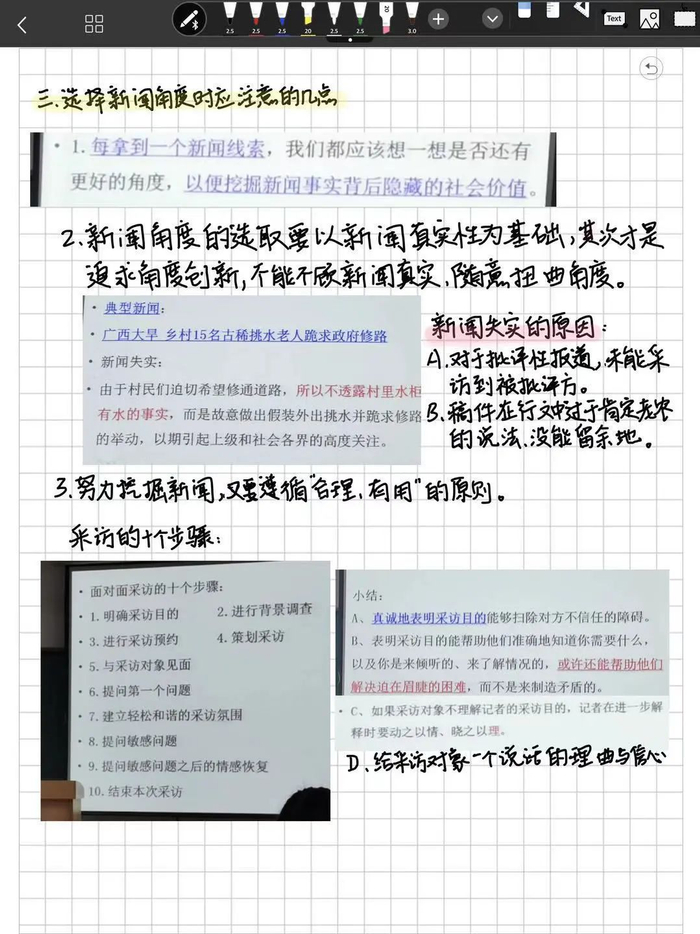 2.5 2.5 2.5 20 2.5 2.5 3.0 Text
三.选择新闻角度时应注意的几点
• 1. 每拿到一个新闻线索，我们都应该想一想是否还有
更好的角度，以便挖掘新闻事实背后隐藏的社会价值。
2.新闻角度的选取要以新闻真实性为基础,其次才是
追求角度创新,不能不顾新闻真实,随意扭曲角度。
• 典型新闻：
• 广西大旱 乡村15名古稀挑水老人跪求政府修路
• 新闻失实：
• 由于村民们迫切希望修通道路，所以不透露村里水柜
有水的事实，而是故意做出假装外出挑水并跪求修路
的举动，以期引起上级和社会各界的高度关注。
新闻失实的原因：
A.对于批评性报道,未能采
访到被批评方。
B.稿件在行文中过于肯定老农
的说法,没能留余地。
3.努力挖掘新闻,又要遵循“合理,有用”的原则。
采访的十个步骤：
• 面对面采访的十个步骤：
• 1. 明确采访目的 2. 进行背景调查
• 3. 进行采访预约 4. 策划采访
• 5. 与采访对象见面
• 6. 提问第一个问题
• 7. 建立轻松和谐的采访氛围
• 8. 提问敏感问题
• 9. 提问敏感问题之后的情感恢复
10. 结束本次采访
小结：
A、真诚地表明采访目的能够扫除对方不信任的障碍。
B、表明采访目的能帮助他们准确地知道你需要什么，
以及你是来倾听的、来了解情况的，或许还能帮助他们
解决迫在眉睫的困难，而不是来制造矛盾的。
• C、如果采访对象不理解记者的采访目的，记者在进一步解
释时要动之以情、晓之以理。
D、给采访对象一个说话的理由与信心